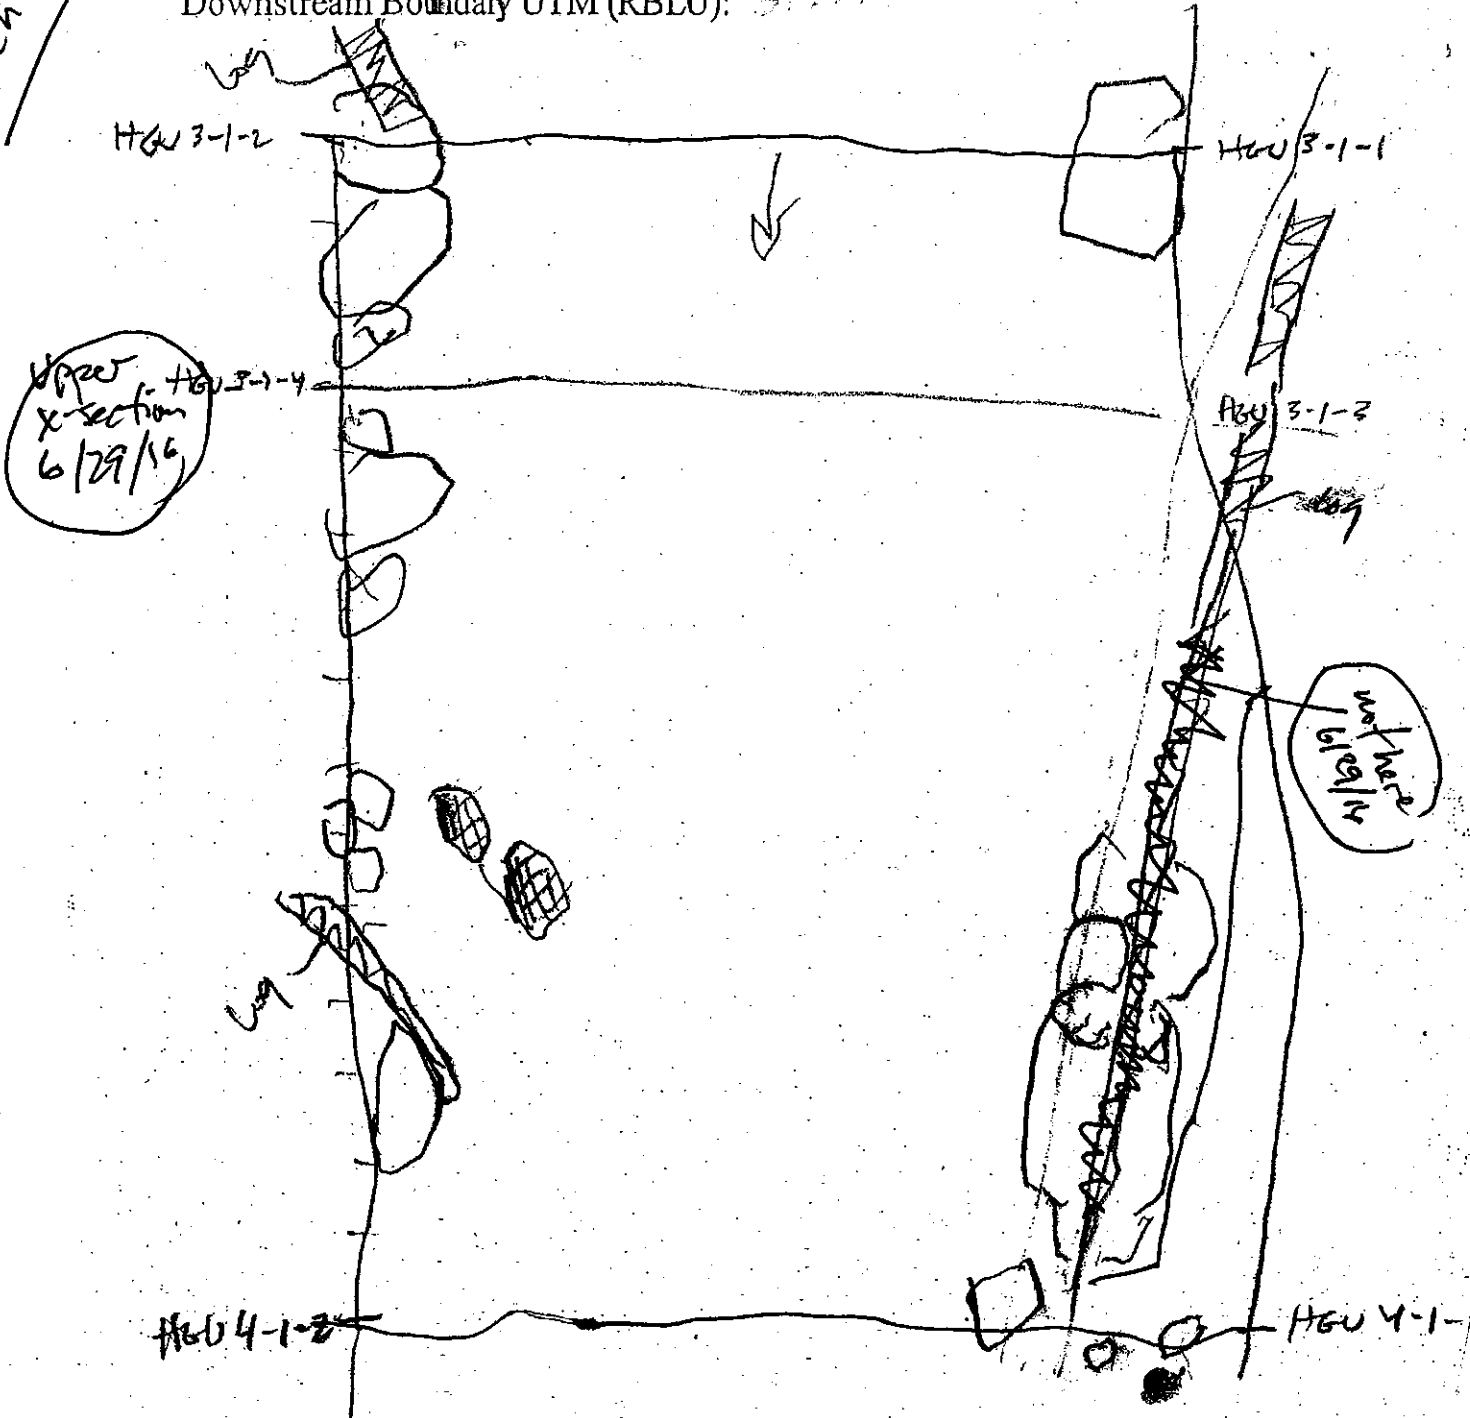 Downstream Boundary UTM (RBLU):
Log
HGU 3-1-2
HGU 3-1-1
Upper
x-section
6/29/16
HGU 3-1-4
HGU 3-1-3
Log
not here
6/29/16
Log
HGU 4-1-2
HGU 4-1-